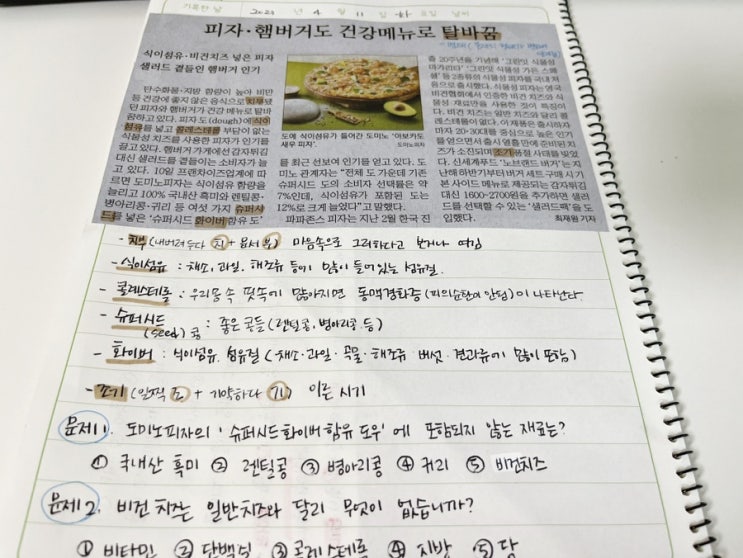 기록한 날 2023 년 4 월 11 일 화 요일 날씨
피자·햄버거도 건강메뉴로 탈바꿈
식이섬유·비건치즈 넣은 피자
샐러드 곁들인 햄버거 인기
탄수화물·지방 함량이 높아 비만
등 건강에 좋지 않은 음식으로 치부됐
던 피자와 햄버거가 건강 메뉴로 탈바
꿈하고 있다. 피자 도(dough)에 식이
섬유를 넣고 콜레스테롤 부담이 없는
식물성 치즈를 사용한 피자가 인기를
끌고 있다. 햄버거 가게에선 감자튀김
대신 샐러드를 곁들이는 소비자가 늘
고 있다. 10일 프랜차이즈업계에 따
르면 도미노피자는 식이섬유 함량을
늘리고 100% 국내산 흑미와 렌틸콩·
병아리콩·귀리 등 여섯 가지 슈퍼시
드를 넣은 '슈퍼시드 화이버 함유 도'
도에 식이섬유가 들어간 도미노 '아보카도
새우 피자'. 도미노피자
를 최근 선보여 인기를 얻고 있다. 도
미노 관계자는 "전체 도 가운데 기존
슈퍼시드 도의 소비자 선택률은 약
7%인데, 식이섬유가 포함된 도는
12%로 크게 늘었다"고 말했다.
파파존스 피자는 지난 2월 한국 진
출 20주년을 기념해 '그린잇 식물성
마가리타' '그린잇 식물성 가든 스페
셜' 등 2종류의 식물성 피자를 국내 처
음으로 출시했다. 식물성 피자는 영국
비건협회에서 인증한 비건 치즈와 식
물성 재료만을 사용한 것이 특징이
다. 비건 치즈는 일반 치즈와 달리 콜
레스테롤이 없다. 이 제품은 출시하자
마자 20·30대를 중심으로 높은 인기
를 얻으면서 출시 열흘 만에 준비된 치
즈가 소진되며 조기 품절 사태를 빚었
다. 신세계푸드 '노브랜드 버거'는 지
난해 하반기부터 버거 세트 구매 시 기
본 사이드 메뉴로 제공되는 감자튀김
대신 1600~2700원을 추가하면 샐러
드를 선택할 수 있는 '샐러드팩'을 도
입했다. 최재원 기자
- 치부 (내버려두다 치 + 음서 부) 마음속으로 그러하다고 보거나 여김
- 식이섬유 : 채소, 과일, 해조류 등에 많이 들어있는 섬유질.
- 콜레스테롤 : 우리몸속 핏속에 많아지면 동맥경화증 (피의순환이 안됨) 이 나타난다.
- 슈퍼시드 (seed) 콩 : 좋은 곡들 (렌틸콩, 병아리콩 등)
- 화이버 : 식이섬유, 섬유질 (·채소·과일·곡물·해조류 버섯·견과류에 많이 포함)
- 조기 (일찍 조 + 기약하다 기) 이른 시기
문제1. 도미노피자의 '슈퍼시드화이버함유 도우'에 포함되지 않는 재료는?
① 국내산 흑미 ② 렌틸콩 ③ 병아리콩 ④ 귀리 ⑤ 비건치즈
문제2. 비건 치즈는 일반치즈와 달리 무엇이 없습니까?
① 비타민 ② 단백질 ③ 콜레스테롤 ④ 지방 ⑤ 당